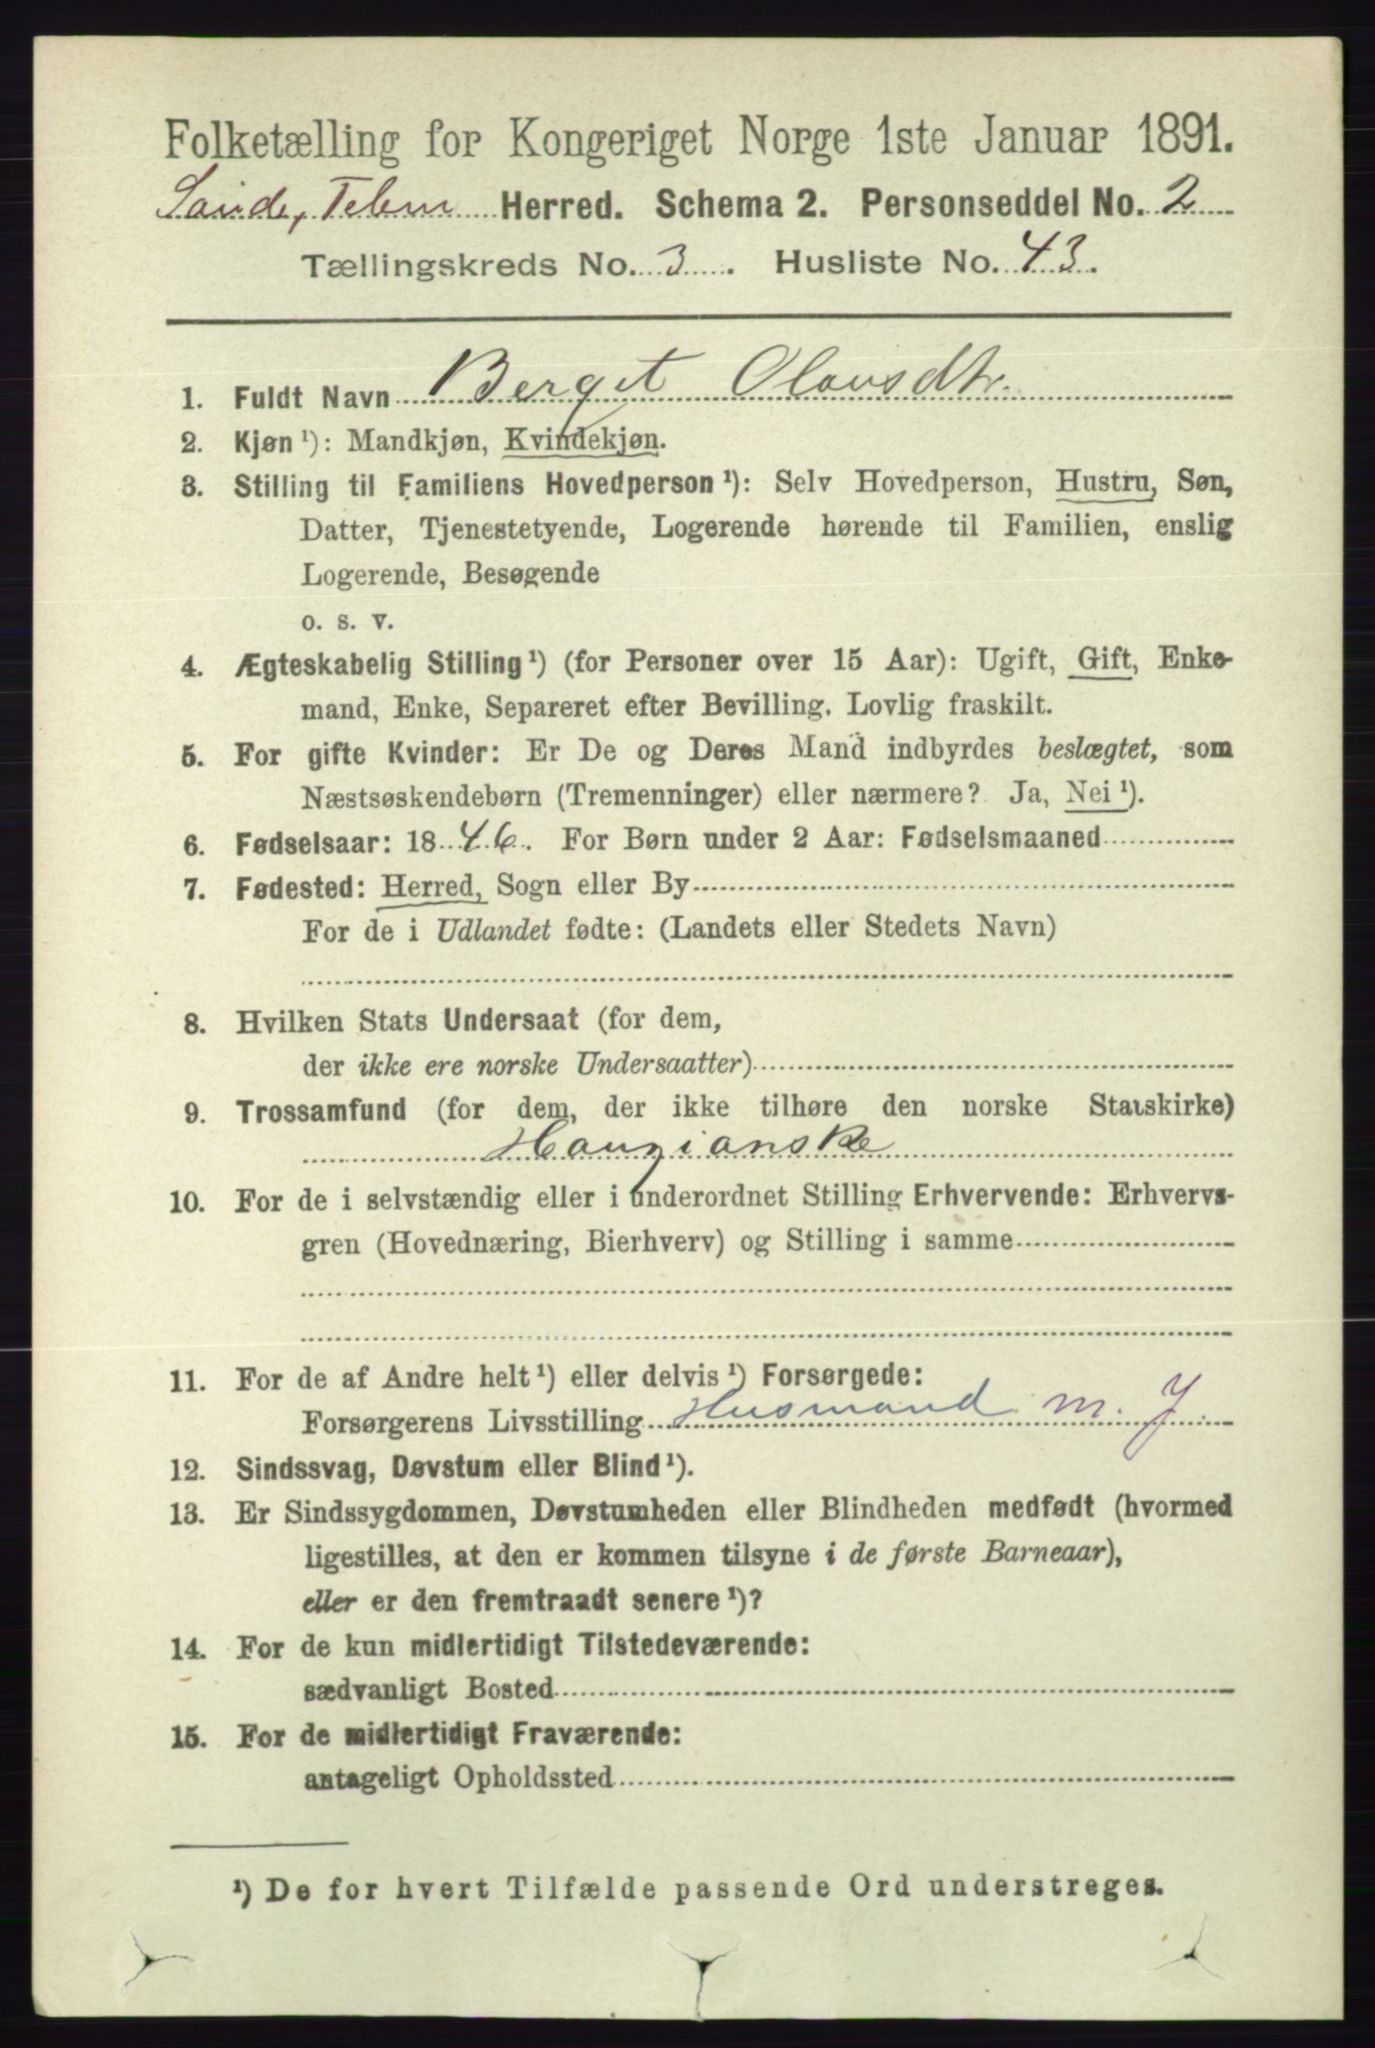 Folketælling for Kongeriget Norge 1ste Januar 1891.
Herred. Schema 2. Personseddel No. 2
Tællingskreds No. 3. Husliste No. 43.
1. Fuldt Navn Berget Olavsdtr.
2. Kjøn ¹): Mandkjøn, Kvindekjøn.
3. Stilling til Familiens Hovedperson ¹): Selv Hovedperson, Hustru, Søn,
Datter, Tjenestetyende, Logerende hørende til Familien, enslig
Logerende, Besøgende
o. s. v.
4. Ægteskabelig Stilling ¹) (for Personer over 15 Aar): Ugift, Gift, Enke-
mand, Enke, Separeret efter Bevilling. Lovlig fraskilt.
5. For gifte Kvinder: Er De og Deres Mand indbyrdes beslægtet, som
Næstsøskendebørn (Tremenninger) eller nærmere? Ja, Nei ¹).
6. Fødselsaar: 1846. For Børn under 2 Aar: Fødselsmaaned
7. Fødested: Herred, Sogn eller By
For de i Udlandet fødte: (Landets eller Stedets Navn)
8. Hvilken Stats Undersaat (for dem,
der ikke ere norske Undersaatter)
9. Trossamfund (for dem, der ikke tilhøre den norske Statskirke)
Haugianske
10. For de i selvstændig eller i underordnet Stilling Erhvervende: Erhvervs-
gren (Hovednæring, Bierhverv) og Stilling i samme
11. For de af Andre helt ¹) eller delvis ¹) Forsørgede:
Forsørgerens Livsstilling Husmand m. J.
12. Sindssvag, Døvstum eller Blind ¹).
13. Er Sindssygdommen, Døvstumheden eller Blindheden medfødt (hvormed
ligestilles, at den er kommen tilsyne i de første Barneaar),
eller er den fremtraadt senere ¹)?
14. For de kun midlertidigt Tilstedeværende:
sædvanligt Bosted
15. For de midlertidigt Fraværende:
antageligt Opholdssted
¹) De for hvert Tilfælde passende Ord understreges.